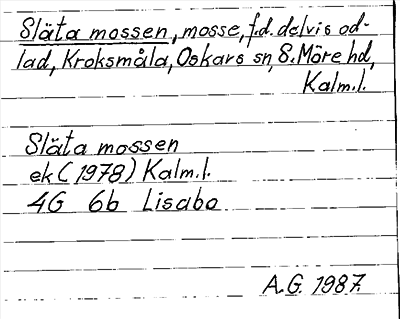 Släta mossen, mosse, f.d. delvis od-
lad, Kroksmåla, Oskars sn, S. Möre hd,
Kalm.l.
Släta mossen
ek (1978) Kalm.l.
4G 6b Lisabo
A.G. 1987.